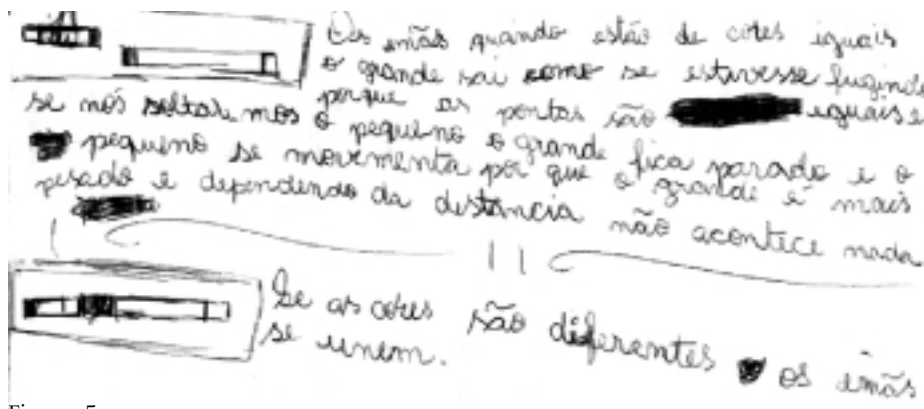 Os imãs quando estão de cores iguais
o grande sai como se estivesse fugindo
porque as pontas são iguais e
se nós soltarmos o pequeno o grande fica parado e o
pequeno se movimenta por que o grande é mais
pesado e dependendo da distância não acontece nada
Se as cores são diferentes os imãs
se unem.